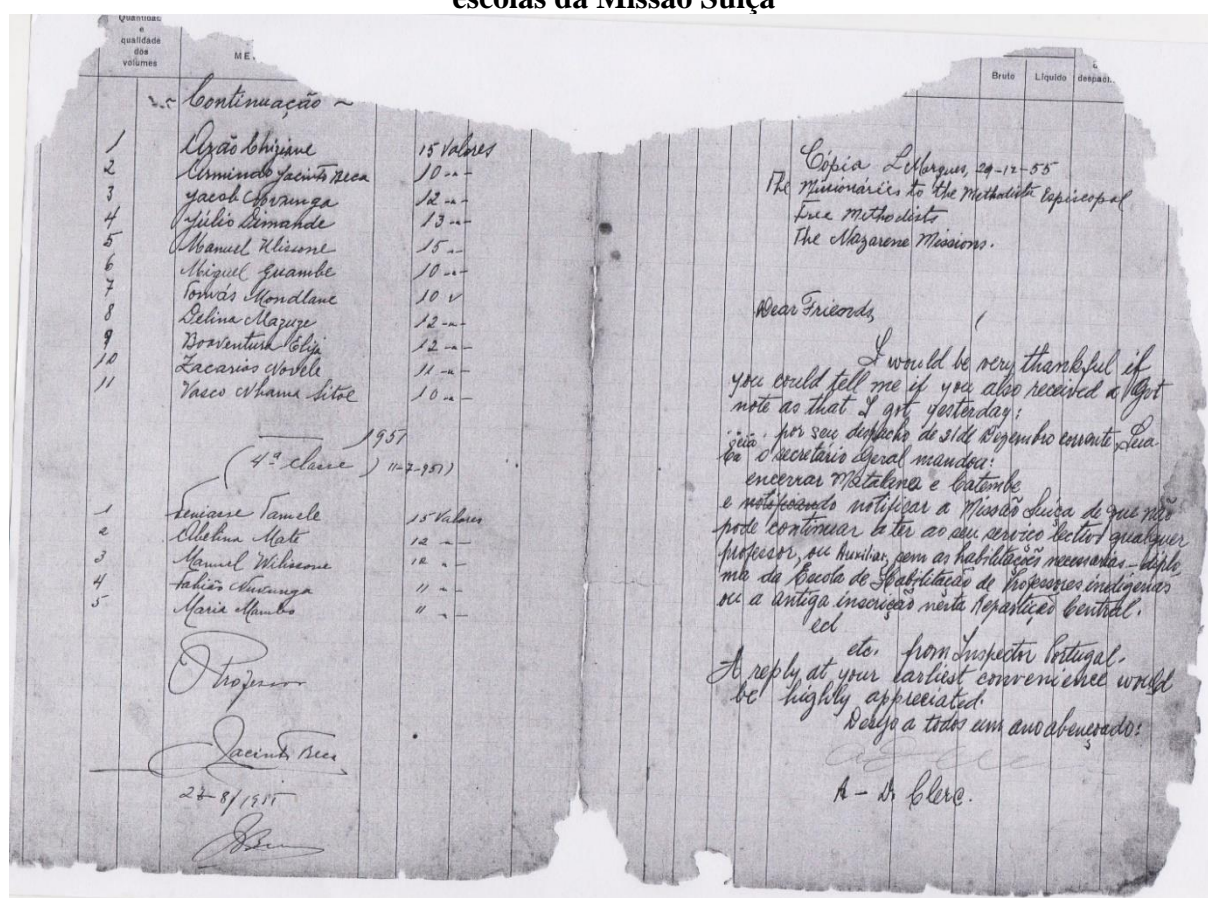 escolas da Missão Suíça
Quantidade
e
qualidade
dos
volumes
ME
Continuação ~
1 Chiziane 15 Valores
2 Armindo Jacinto Beca 10 -"-
3 Jacob 12 -"-
4 Júlio Dimande 13 -"-
5 Manuel Ulissone 15 -"-
6 Miguel Guambe 10 -"-
7 Tomás Mondlane 10 "
8 Delina Mazuze 12 -"-
9 Boaventura 12 -"-
10 Zacarias Novele 11 -"-
11 Vasco Nhama Sitoe 10 -"-
1951
(4ª classe) 11-7-951)
1 Tamele 15 Valores
2 Abelina Mate 12 " -
3 Manuel Wilissone " -
4 Nuvunga 11 " -
5 Maria 11 " -
O Professor
Jacinto Beca
Bruto Líquido despach
Cópia L. Marques, 29-12-55
The Missionáries to the Methodista Episcopal
Free Methodists
The Nazarene Missions.
Dear Friends,
I would be very thankful if
you could tell me if you also received a Got
note as that I got yesterday:
por seu despacho de 21 de Dezembro corrente, Sua
o secretário Geral mandou:
encerrar Matalana e Catembe
e notificando notificar a Missão Suíça de que não
pode continuar a ter ao seu serviço lectivo qualquer
professor, ou Auxiliar, sem as habilitações necessarias - diplo-
ma da Escola de Habilitação de Professores indígenas
ou a antiga inscrição nesta Repartição Central.
ect
etc. from Inspector Portugal.
A reply at your earliest convenience would
be highly appreciated.
Desejo a todos um ano abençoado:
A - D. Clerc.